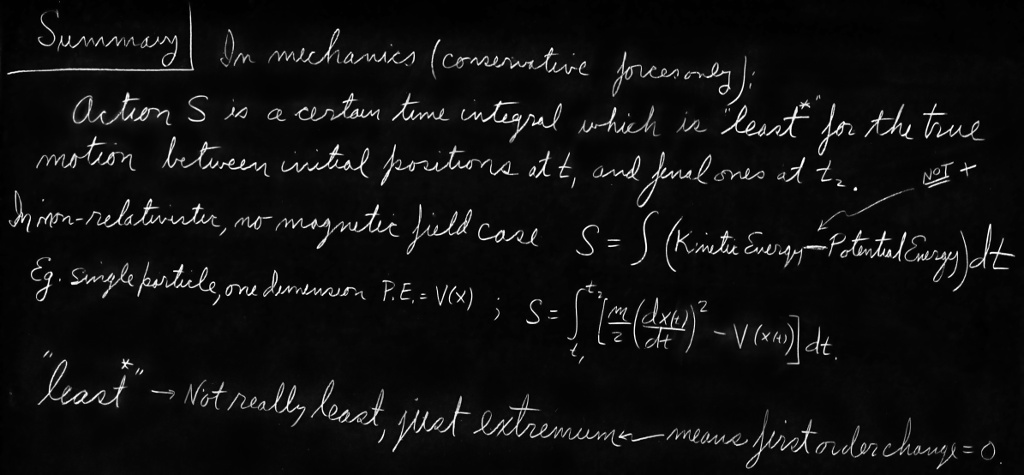 Summary In mechanics (conservative forces only):
Action S is a certain time integral which is "least*" for the true
motion between initial positions at t₁ and final ones at t₂. NOT +
In non-relativistic, no magnetic field case S = ∫ (Kinetic Energy — Potential Energy) dt
Eg. single particle, one dimension P.E. = V(x) ; S = ∫_{t₁}^{t₂} [m/2 (dx(t)/dt)² - V(x(t))] dt.
"least*" → Not really least, just extremum ← means first order change = 0.